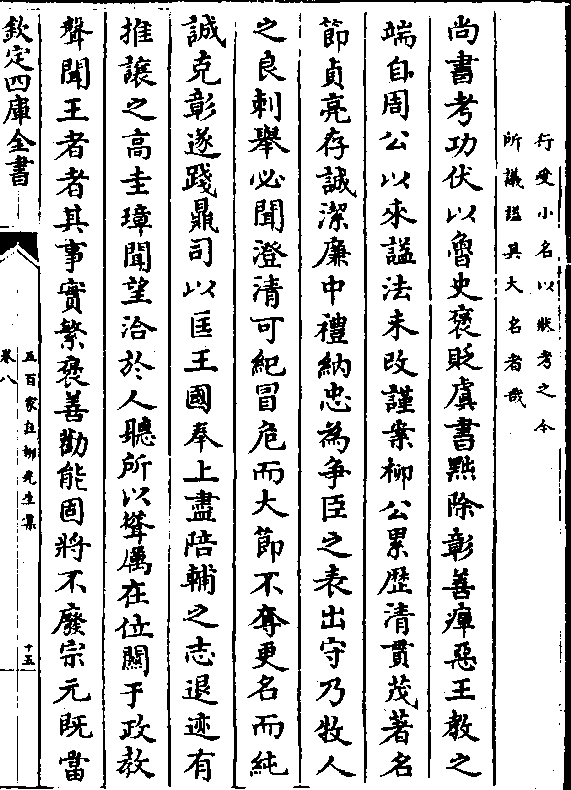 行受小名以狀考之今
所議謚其大名者哉
尚書考功伏以魯史褒貶虞書黜除彰善癉惡王教之
端自周公以來謚法未改謹案柳公累歷清貫茂著名
節貞亮存誠潔廉中禮納忠為爭臣之表出守乃牧人
之良刺舉必聞澄清可紀冒危而大節不奪更名而純
誠克彰遂踐鼎司以匡王國奉上盡陪輔之志退迹有
推讓之高圭璋聞望洽於人聽所以聳厲在位關于政教
聲聞王者者其事實繁褒善勸能固將不廢宗元既當
欽定四庫全書
五百家註柳先生集
卷八
十五